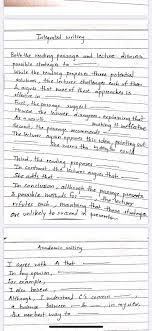 Integrated writing
Both the reading passage and lecture discuss
possible strategies to
While the reading proposes three potential
solutions, the lecturer challenges each of them
& argues that none of these approaches is
effective in
First, the passage suggest
However the lecturer disagrees explaining that
As a result, making it ineffective
Second, the passage recommends
The lecturer again opposes this idea, pointing out
She warns that would
Third, the reading proposes
In contrast, the lecturer argues that
She adds that
In conclusion, although the passage presents
possible methods for the lecturer
refutes each, that these strategies
are unlikely to succeed in
Academic writing
I agree with A that
In my opinion,
For example,
I also believe
Although I understand C's concern
a balance between & in my view
the best way to